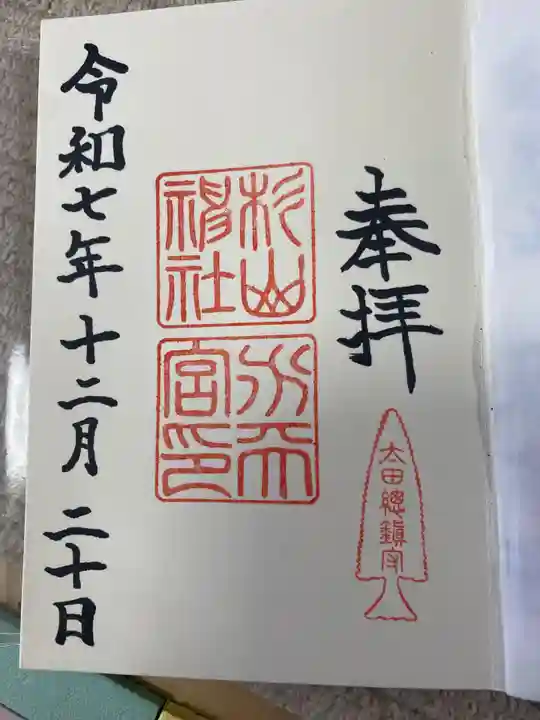 奉拝
太田總鎮守
杉山
神社
宮印
令和七年十二月二十日